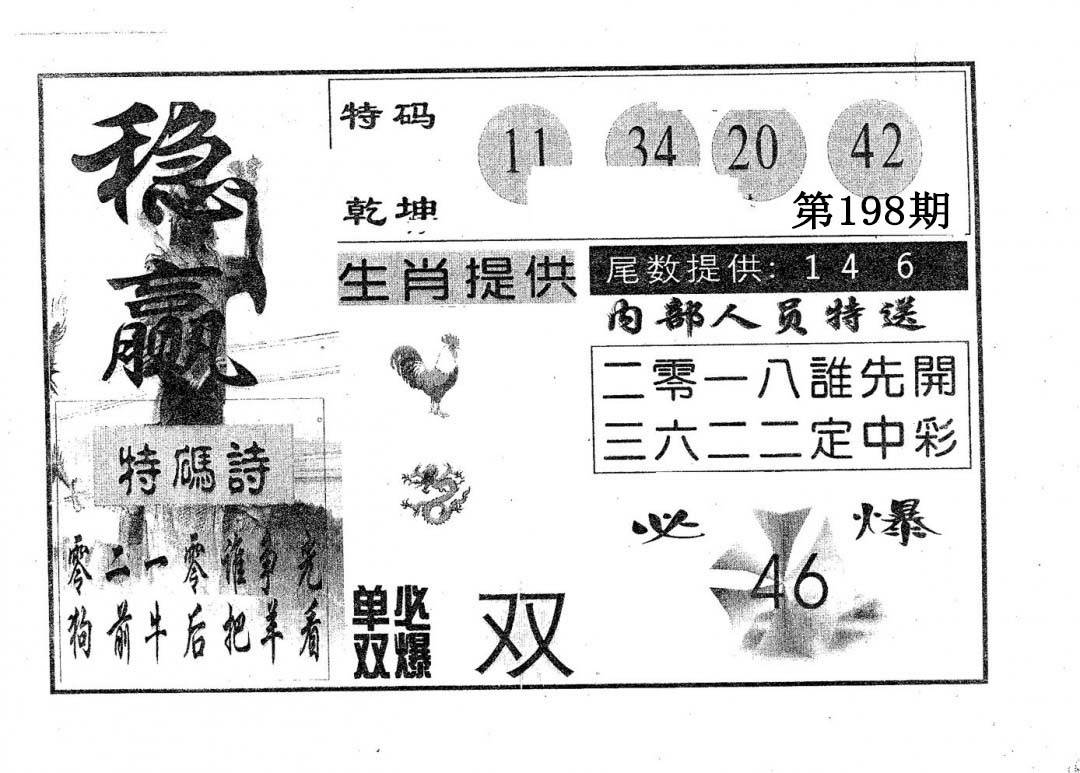 稳赢
特码
乾坤
11 34 20 42
第198期
生肖提供
尾数提供: 1 4 6
内部人员特送
二零一八誰先開
三六二二定中彩
特碼詩
零二一零谁争先
狗前牛后把羊看
单双
必爆
双
必爆
46